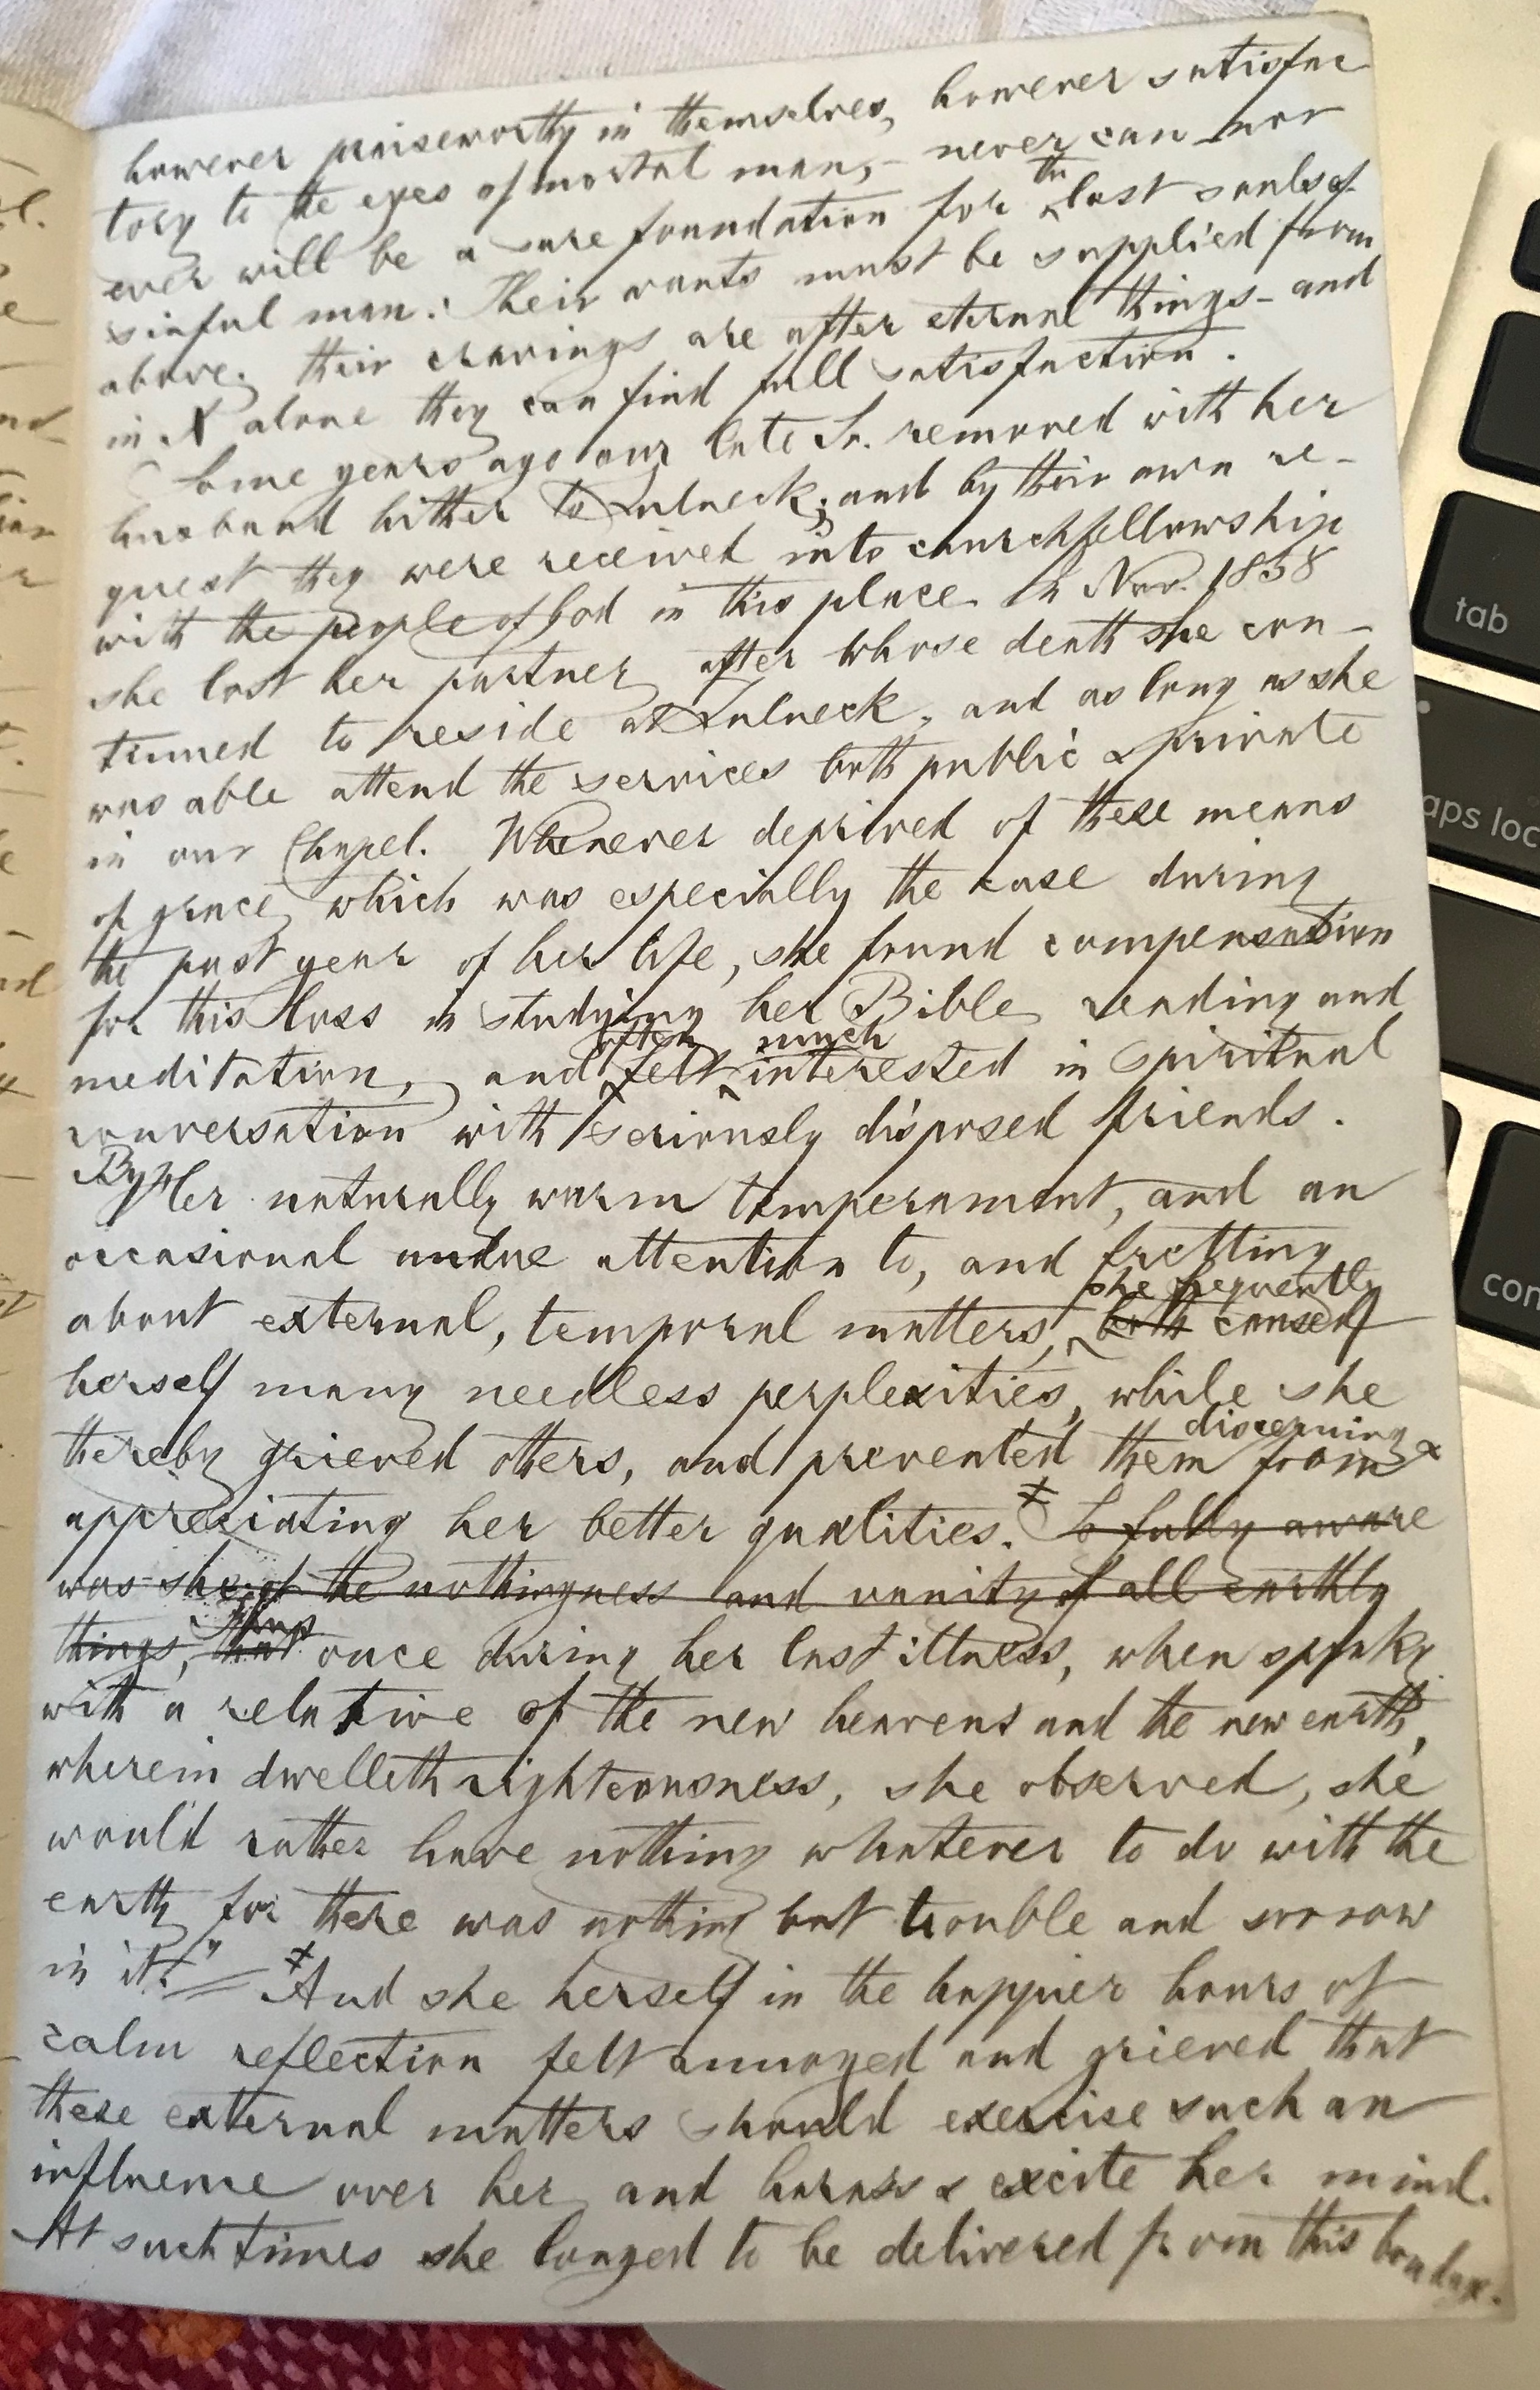 however praiseworthy in themselves, however satisfac
tory to the eyes of mortal man, - never can nor
ever will be a sure foundation for the lost souls of
sinful man. Their wants must be supplied from
above, their cravings are after eternal things - and
in X alone they can find full satisfaction.
Some years ago our late Sr. removed with her
husband hither to Fulneck; and by their own re-
quest they were received into church fellowship
with the people of God in this place. In Nov. 1858
she lost her partner, after whose death she con-
tinued to reside at Fulneck, and as long as she
was able attend the services both public & private
in our Chapel. Whenever deprived of these means
of grace, which was especially the case during
the past year of her life, she found compensation
for this loss in studying her Bible, reading and
meditation, and often felt much interested in spiritual
conversation with seriously disposed friends.
By Her naturally warm temperament, and an
occasional undue attention to, and fretting
about external, temporal matters, she frequently both caused
herself many needless perplexities, while she
thereby grieved others, and prevented them from discerning &
appreciating her better qualities. ‡ So fully aware
was she of the nothingness and vanity of all earthly
things, that Thus once during her last illness, when speakg
with a relative of the new heavens and the new earth,
wherein dwelleth righteousness, she observed, she
would rather have nothing whatever to do with the
earth, for there was nothing but trouble and sorrow
in it." = ‡ And she herself in the happier hours of
calm reflection felt annoyed and grieved that
these external matters should exercise such an
influence over her, and harass & excite her mind.
At such times she longed to be delivered from this bondage.
tab
caps loc
con